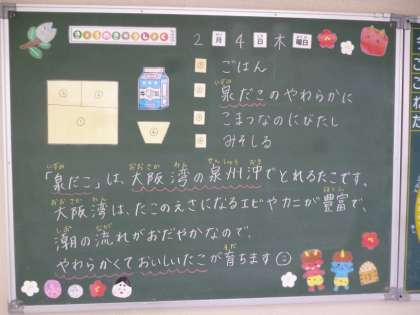 きょうのきゅうしょく
2月4日木曜日
① ごはん
② 泉だこのやわらかに
③ こまつなのにびたし
④ みそしる
「泉だこ」は、大阪湾の泉州沖でとれるたこです。
大阪湾は、たこのえさになるエビやカニが豊富で、
潮の流れがおだやかなので、
やわらかくておいしいたこが育ちます